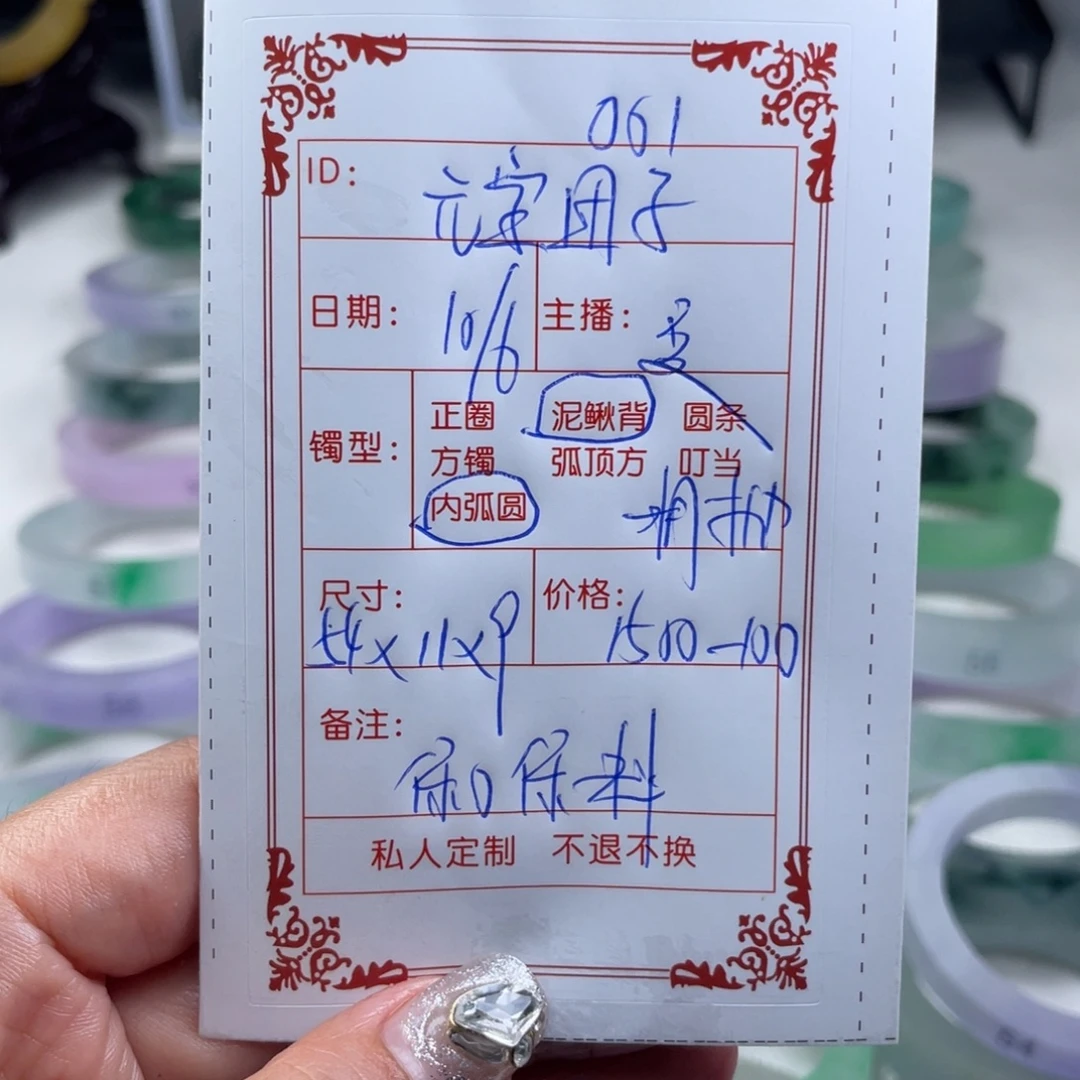 061
ID: 元宇团子
日期: 10/6 主播:
镯型: 正圈 泥鳅背 圆条
方镯 弧顶方 叮当
内弧圆
尺寸: 54×11×9 价格: 1500-100
备注: 保口保料
私人定制 不退不换